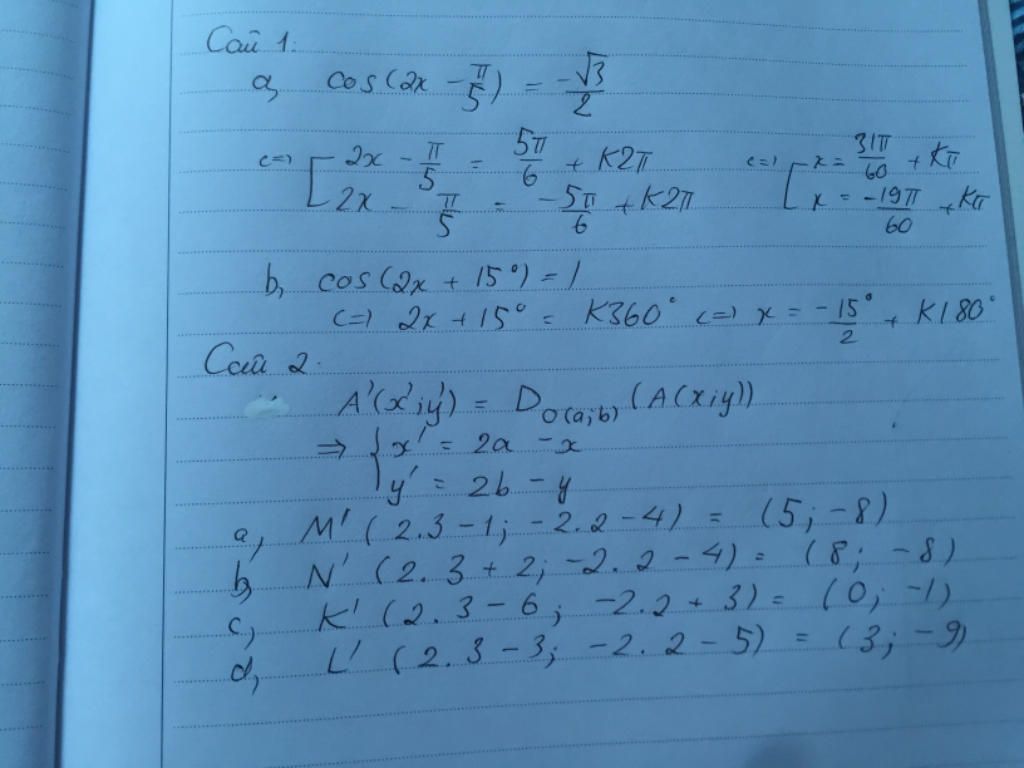 Câu 1:
a, cos(2x - π/5) = -√3/2
<=> [ 2x - π/5 = 5π/6 + K2π <=> [ x = 31π/60 + Kπ
2x - π/5 = -5π/6 + K2π x = -19π/60 + Kπ
b, cos(2x + 15°) = 1
<=> 2x + 15° = K360° <=> x = -15°/2 + K180°
Câu 2.
A'(x';y') = D_O(a;b) (A(x;y))
=> { x' = 2a - x
y' = 2b - y
a, M' (2.3 - 1; -2.2 - 4) = (5; -8)
b, N' (2.3 + 2; -2.2 - 4) = (8; -8)
c, K' (2.3 - 6; -2.2 + 3) = (0; -1)
d, L' (2.3 - 3; -2.2 - 5) = (3; -9)